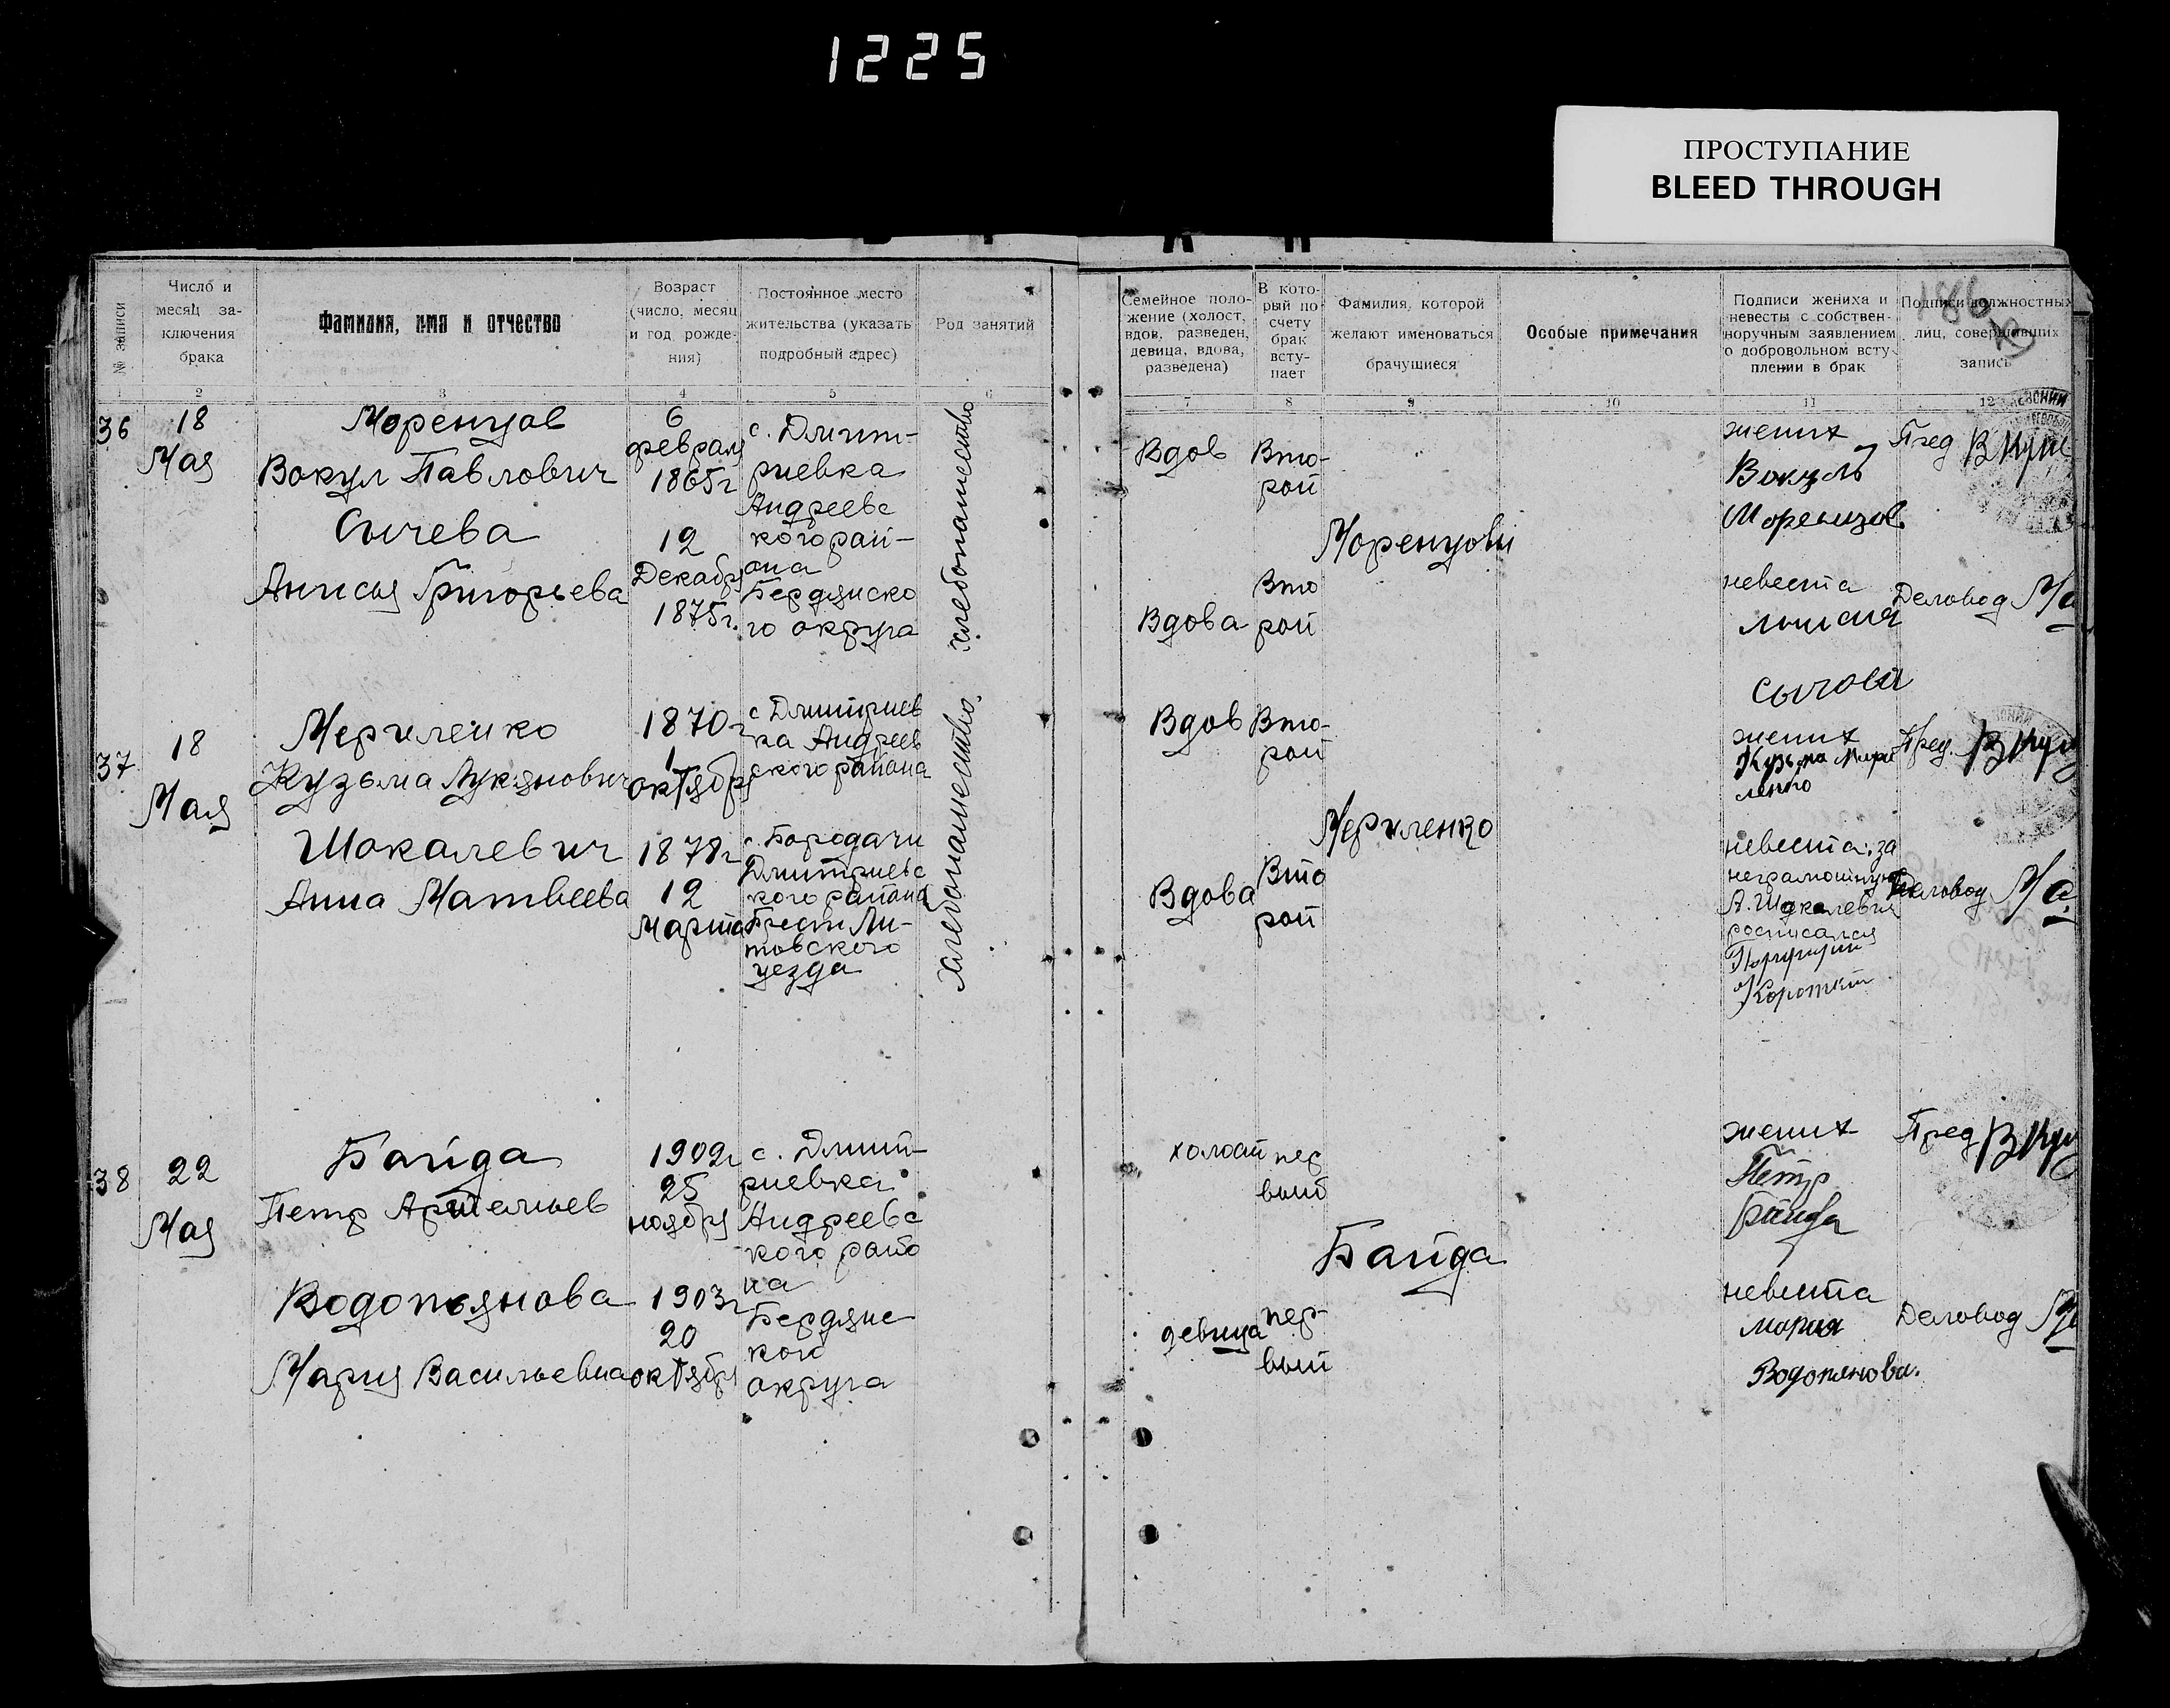 1225
ПРОСТУПАНИЕ
BLEED THROUGH
№ записи
Число и
месяц за-
ключения
брака
Фамилия, имя и отчество
Возраст
(число, месяц
и год рожде-
ния)
Постоянное место
жительства (указать
подробный адрес)
Род занятий
Семейное поло-
жение (холост,
вдов, разведен,
девица, вдова,
разведена)
В кото-
рый по
счету
брак
всту-
пает
Фамилия, которой
желают именоваться
брачущиеся
Особые примечания
Подписи жениха и
невесты с собствен-
норучным заявлением
о добровольном всту-
плении в брак
Подписи должностных
лиц, совершивших
запись
1 2 3 4 5 6 7 8 9 10 11 12
36
18
Мая
Моренцов
Вокул Павлович
Сычева
Анисья Григорьева
6
февраля
1865г
12
Декабр
1875г.
с. Дмит-
риевка
Андреевс
кого рай-
она
Бердянско
го округа
хлебопашество
Вдов
Вто-
рой
Вдова
Вто
рой
Моренцовы
жених
Вокул
Моренцов
невеста
Сычова
Пред
Деловод
37
18
Мая
Мериленко
Кузьма Лукянович
Шокалевич
Анна Матвеева
1870г
1
октябр
1878г
12
марта
с Дмитриев
ка Андреев
ского района
с. Бородачи
Дмитриевс
кого района
Брест Ли-
товского
уезда
хлебопашество
Вдов
Вто-
рой
Вдова
Вто
рой
Мериленко
жених
Кузьма Мири
ленко
невеста: за
неграмотную
А. Шокалевич
росписался
Порфирий
Короткий
Пред.
Деловод
38
22
Мая
Байда
Петр Артемьев
Водопьянова
Мария Васильевна
1902г
25
ноябр
1903г
20
октябр
с. Дмит-
риевка
Андреевс
кого райо
на
Бердянс
кого
округа
холост
пер
вый
девица
пер-
вый
Байда
жених
Петр
Байда
невеста
Мария
Водопянова.
Пред
Деловод